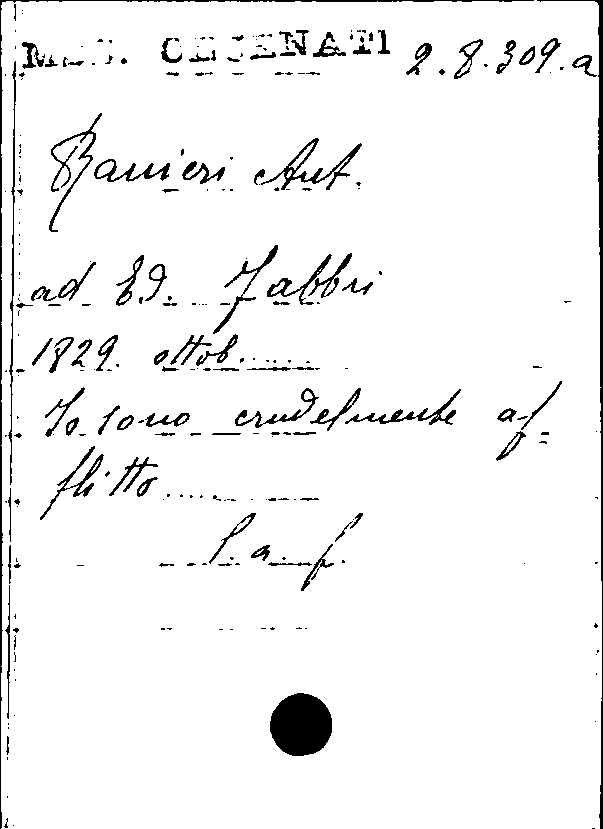 MSS. CESENATI 2.8.309.a
Ranieri Ant.
ad Ed. Fabbri
1829. ottob......
Io sono crudelmente af=
flitto......
l. a. f.